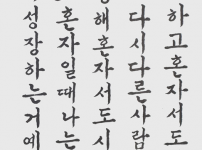 하고혼자서도
다시다른사람
해혼자서도시
혼자일때나는
성장하는거예